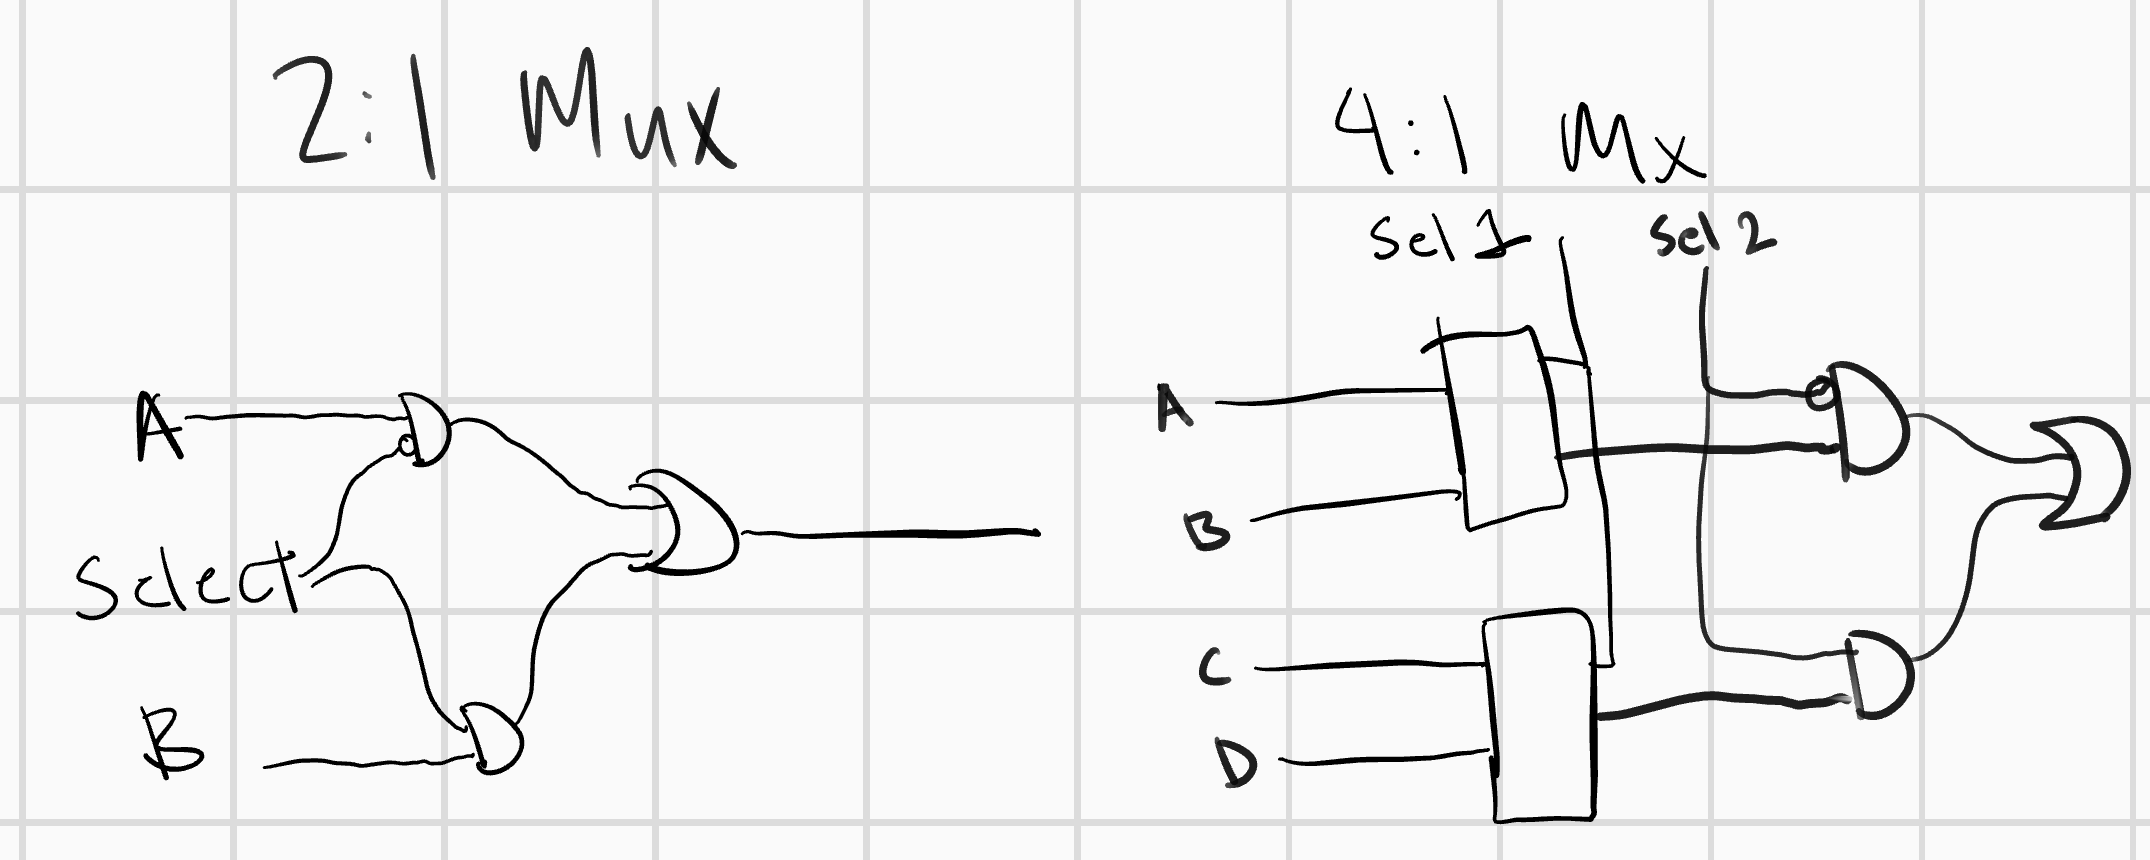 2:1 Mux
A
Select
B
4:1 Mx
Sel 1
Sel 2
A
B
C
D